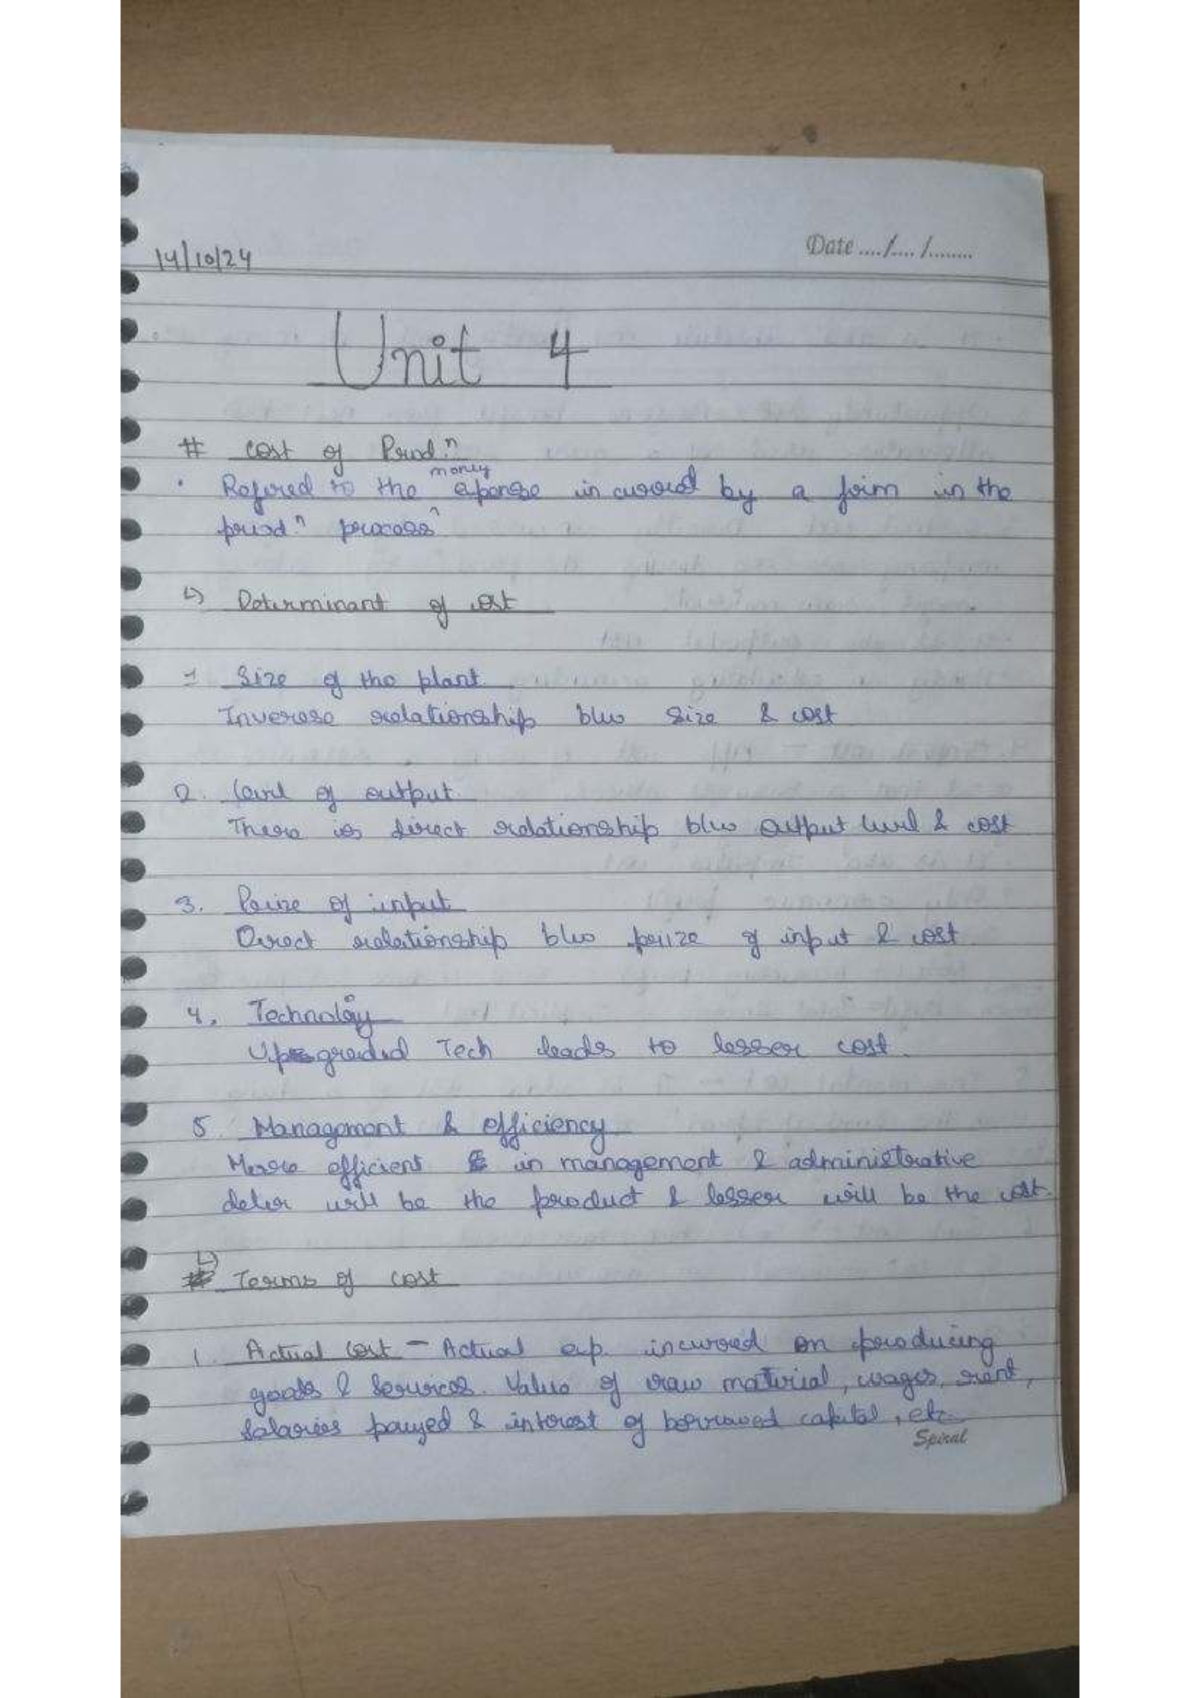 Date ..../.... /........
14/10/24
Unit 4
# Cost of Prodⁿ
money
• Refered to the expense incurred by a firm in the
prodⁿ process
↳ Determinant of cost
1 Size of the plant
Inverse relationship b/w size & cost
2. Level of output
There is direct relationship b/w output level & cost
3. Prize of input
Direct relationship b/w prize of input & cost
4. Technology
Upgraded Tech leads to lesser cost.
5. Management & efficiency
More efficient in management & administrative
will be the product & lesser will be the cost.
↳ Terms of cost
1. Actual Cost – Actual exp. incurred on producing
goods & services. Value of raw material, wages, rent,
salaries payed & interest of borrowed capital, etc
Spiral